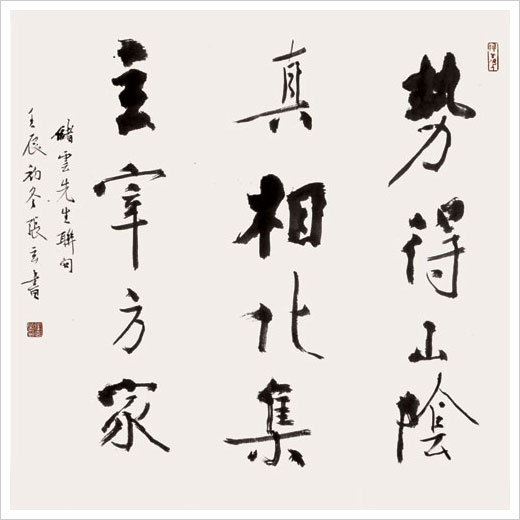 势得山陰
真相化集
主宰方家
儲雲先生聯句
壬辰初冬張玄書